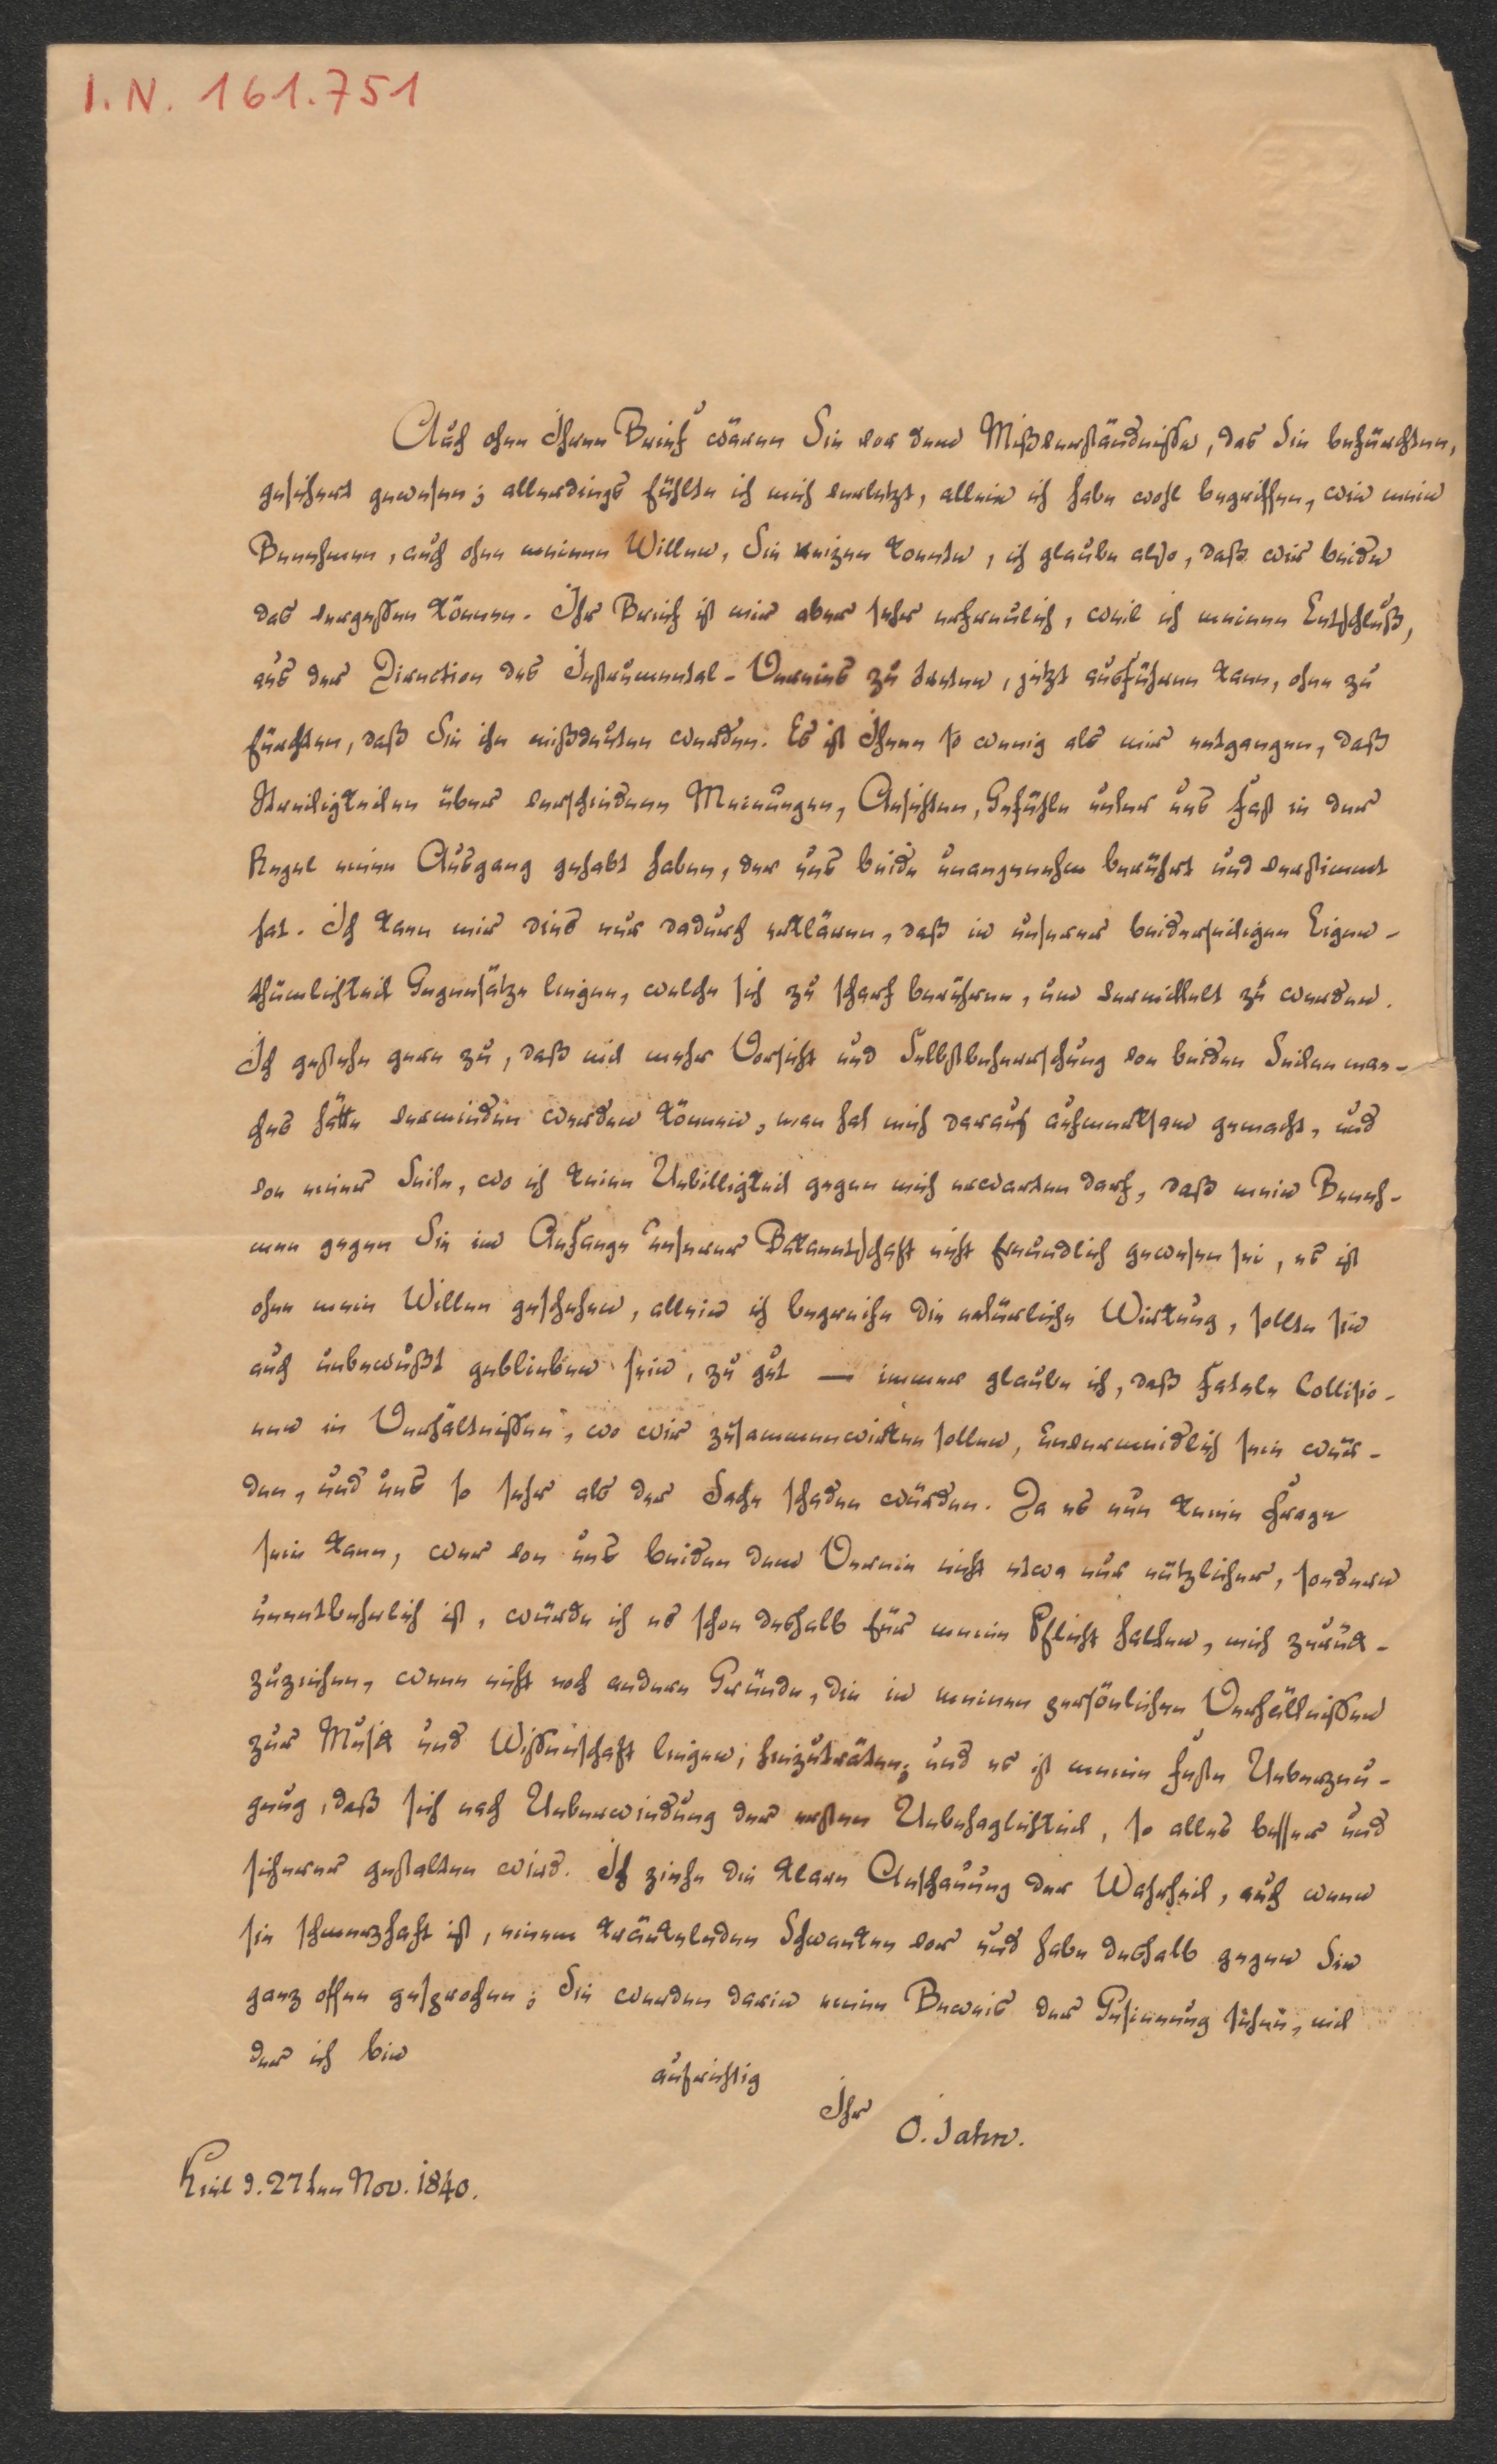 I. N. 161.751
Auch ohne Ihren Brief wären Sie vor dem Mißverständnisse, das Sie befürchten,
gesichert gewesen; allerdings fühlte ich mich verletzt, allein ich habe wohl begriffen, wie mein
Benehmen, auch ohne meinen Willen, Sie reizen konnte, ich glaube also, daß wir beide
das vergessen können. Ihr Brief ist mir aber sehr erfreulich, weil ich meinen Entschluß,
aus der Direction des Instrumental-Vereins zu treten, jetzt ausführen kann, ohne zu
fürchten, daß Sie ihn mißdeuten werden. Es ist Ihnen so wenig als mir entgangen, daß
Streitigkeiten über verschiedene Meinungen, Ansichten, Gefühle unter uns fast in der
Regel einen Ausgang gehabt haben, der uns beide unangenehm berührt und verstimmt
hat. Ich kann mir dies nur dadurch erklären, daß in unserer beiderseitigen Eigen-
thümlichkeit Gegensätze liegen, welche sich zu scharf berühren, um vermittelt zu werden.
Ich gestehe gern zu, daß mit mehr Vorsicht und Selbstbeherrschung von beiden Seiten man-
ches hätte vermieden werden können, man hat mich darauf aufmerksam gemacht, und
von einer Seite, wo ich keine Unbilligkeit gegen mich erwarten darf, daß mein Beneh-
men gegen Sie im Anfange unserer Bekanntschaft nicht freundlich gewesen sei, es ist
ohne mein Willen geschehen, allein ich begreife die natürliche Wirkung, sollte sie
auch unbewußt geblieben sein, zu gut — immer glaube ich, daß fatale Collisio-
nen in Verhältnissen, wo wir zusammenwirken sollen, unvermeidlich sein wür-
den, und uns so sehr als der Sache schaden würden. Da es nun keine Frage
sein kann, wer von uns beiden dem Verein nicht etwa nur nützlicher, sondern
unentbehrlich ist, würde ich es schon deshalb für meine Pflicht halten, mich zurück-
zuziehen, wenn nicht noch andere Gründe, die in meinen persönlichen Verhältnissen
zur Musik und Wissenschaft liegen, hinzuträten; und es ist meine feste Ueberzeu-
gung, daß sich nach Ueberwindung der ersten Unbehaglichkeit, so alles besser und
sicherer gestalten wird. Ich ziehe die klare Anschauung der Wahrheit, auch wenn
sie schmerzhaft ist, einem kränkelnden Schwanken vor und habe deshalb gegen Sie
ganz offen gesprochen; Sie werden darin einen Beweis der Gesinnung sehen, mit
der ich bin
aufrichtig
Ihr
O. Jahn.
Kiel d. 27ten Nov. 1840.